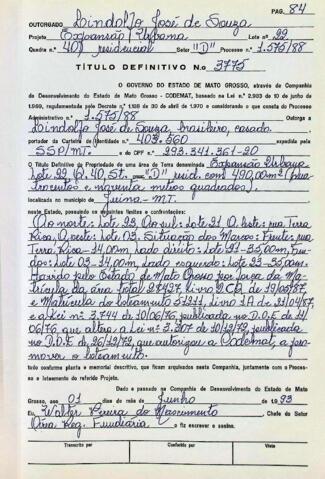 PAG. 84
OUTORGADO Lindolfo José de Souza
Projeto Expansão Urbana Lote 22
Quadra n.º 40 residencial Setor "D" Processo n.º 1.575/88
TÍTULO DEFINITIVO No 3775
O GOVERNO DO ESTADO DE MATO GROSSO, através da Companhia
de Desenvolvimento do Estado de Mato Grosso - CODEMAT, baseado na Lei n.º 2.903 de 10 de junho de
1969, regulamentada pelo Decreto n.º 1.138 de 30 de abril de 1970 e considerando o que consta do Processo
Administrativo n.º 1.575/88
Lindolfo José de Souza, brasileiro, casado.
portador da Carteira de Identidade n.º 403.560 expedida pela
SSP/MT. e do CPF n.º 293.341.361-20
O Título Definitivo de Propriedade de uma área de Terra denominada Expansão Urbana
Lote 22 Q. 40, St. "D" resid. com 490,00m² (qua-
trocentos e noventa metros quadrados).
localizada no município de Juina-MT.
neste Estado, possuindo os seguintes limites e confrontações:
Ao norte: Lote 23, Ao sul: Lote 21 A leste: rua Terra
Roxa, Oeste: Lote 03. Situação dos Marcos: Frente: rua
Terra Roxa-14,00m, Lado direito: Lote 21-35,00m, Fun-
do: Lote 03-14,00m, Lado esquerdo: Lote 23-35,00m.
Havido pelo Estado de Mato Grosso por força da Ma-
trícula da área total 27427, livro 2 de 19/05/87,
e Matrícula do loteamento 51211, livro 1A de 21/04/87,
e a Lei n.º 3.744 de 10/06/76, publicada no D.O.E de
/06/76 que altera a Lei n.º 3.307 de 10/12/72, publicada
no D.O.E de 26/12/72 que autorizou a Codemat, a pro-
mover o loteamento.
tudo conforme planta e memorial descritivo, que ficam arquivados nesta Companhia, juntamente com o Proces-
so e loteamento do referido Projeto.
Dado e passado na Companhia de Desenvolvimento do Estado de Mato
Grosso, aos 01 dias do mês de Junho de 1.993
Eu, Walter Pereira do Nascimento Chefe do Setor
Reg. Fundiária o fiz escrever e assino.
Transcrito por Conferido por Visto